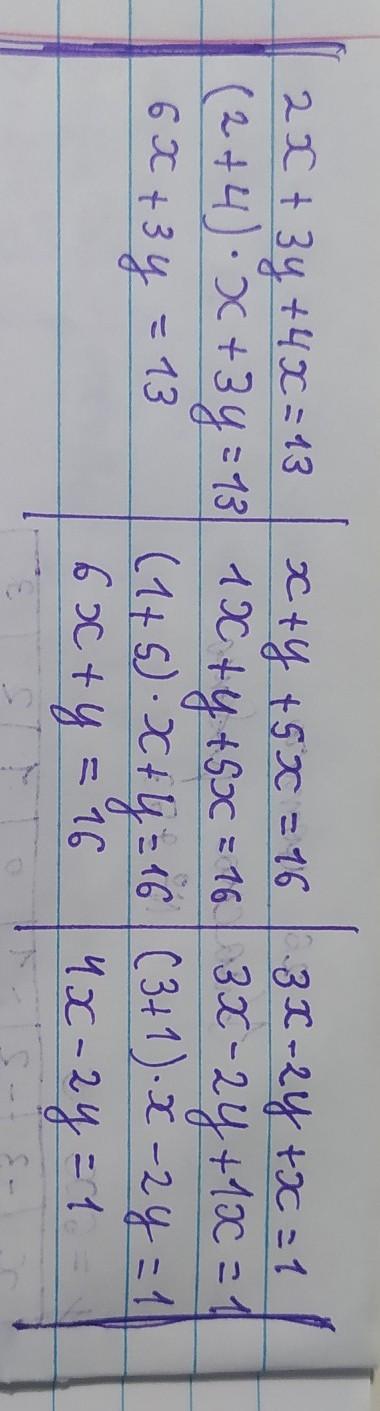 2x + 3y + 4x = 13
(2 + 4) · x + 3y = 13
6x + 3y = 13
x + y + 5x = 16
1x + y + 5x = 16
(1 + 5) · x + y = 16
6x + y = 16
3x - 2y + x = 1
3x - 2y + 1x = 1
(3 + 1) · x - 2y = 1
4x - 2y = 1